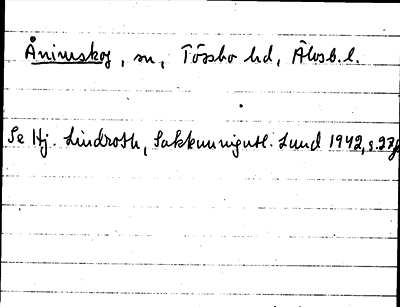 Ånimskog, sn, Tössbo hd, Älvsb. l.
Se Hj. Lindroth, Sakkunnigutl. Lund 1942, s. 27f